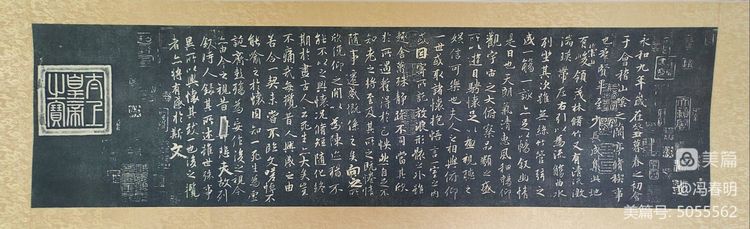 永和九年歲在癸丑暮春之初會
于會稽山陰之蘭亭脩禊事
也羣賢畢至少長咸集此地
有崇山峻領茂林脩竹又有清流激
湍暎帶左右引以為流觴曲水
列坐其次雖無絲竹管弦之
盛一觴一詠亦足以暢敘幽情
是日也天朗氣清惠風和暢仰
觀宇宙之大俯察品類之盛
所以遊目騁懷足以極視聽之
娛信可樂也夫人之相與俯仰
一世或取諸懷抱悟言一室之內
或因寄所託放浪形骸之外雖
趣舍萬殊靜躁不同當其欣
於所遇蹔得於己怏然自足不
知老之將至及其所之既惓情
隨事遷感慨係之矣向之所
欣俛仰之閒以為陳迹猶不
能不以之興懷況脩短隨化終
期於盡古人云死生亦大矣豈
不痛哉每攬昔人興感之由
若合一契未嘗不臨文嗟悼不
能喻之於懷固知一死生為虛
誕齊彭殤為妄作後之視今
亦由今之視昔悲夫故列
敘時人錄其所述雖世殊事
異所以興懷其致一也後之攬
者亦將有感於斯文
太上皇帝之寶
美篇
@冯春明
美篇号:5055562